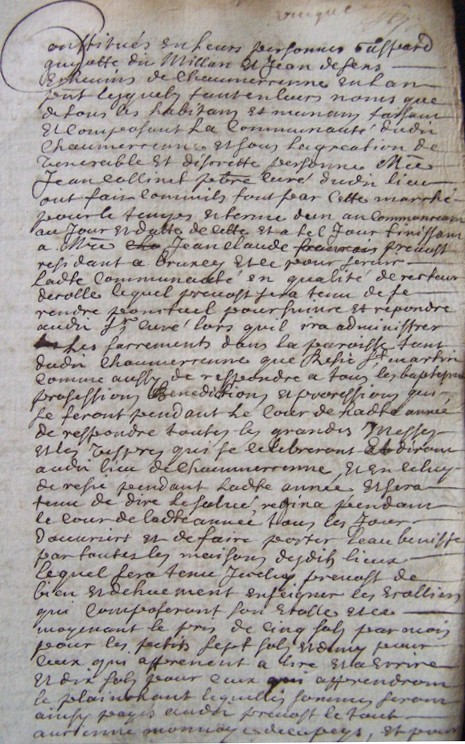 Constitués en leurs personnes Gaspard
guyotte du Millan et Jean defens
Echevins de Chaumercenne en l an
pnt lesquels tant en leurs noms que
de tous les habitans et manans faisan
et composant la Communauté dudit
Chaumercenne et sous la greation de
venerable et discrette personne Mre
Jean Collinet pbre Curé dudit lieu
ont fait Commils tout par cette marché
pour le temps et terme d un an Commenceant
au Jour et datte de cette et a tel Jour finissan
a Mre Jean Claude francois prevost
residant a Bruxey et ce pour servir
ladte Communauté en qualité de recteur
descolle lequel prevost sera tenu de se
rendre ponctuel poursuivre et repondre
audit Sr Curé lors quil ira administrer
les sacrements dans la paroisse tant
dudit Chaumercenne que Resie St martin
comme aussy de respondre a tous les baptesmes
professions Benedictions et processions qui
se feront pendant le Cour de ladte année
de respondre toutes les grandes Messes
et les vespres qui se celebreront et diront
audit lieu de Chaumercenne et en celuy
de resie pendant ladte année et sera
tenu de dire le salvé regina pendant
le cour de ladte année tous les jour
d ouvriers et de faire porter l eau beniste
par toutes les maisons desdits lieux
lequel sera tenu Jceluy prevost de
bien et dehuement enseigner les Escolliers
qui composeront son Escolle et ce
moyenant le pris de cinq sols par mois
pour les petits sept sols et demy pour
ceux qui apprenent a lire et a Escrire
et dix sols pour ceux qui apprendront
le plain chant lequelles sommes seront
ainsy payés audit prevost le tout
ancienne monnoye du pays, et pour